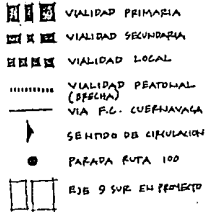 VIALIDAD PRIMARIA
VIALIDAD SECUNDARIA
VIALIDAD LOCAL
VIALIDAD PEATONAL
(BRECHA)
VIA F.C. CUERNAVACA
SENTIDO DE CIRCULACION
PARADA RUTA 100
EJE 9 SUR EN PROYECTO